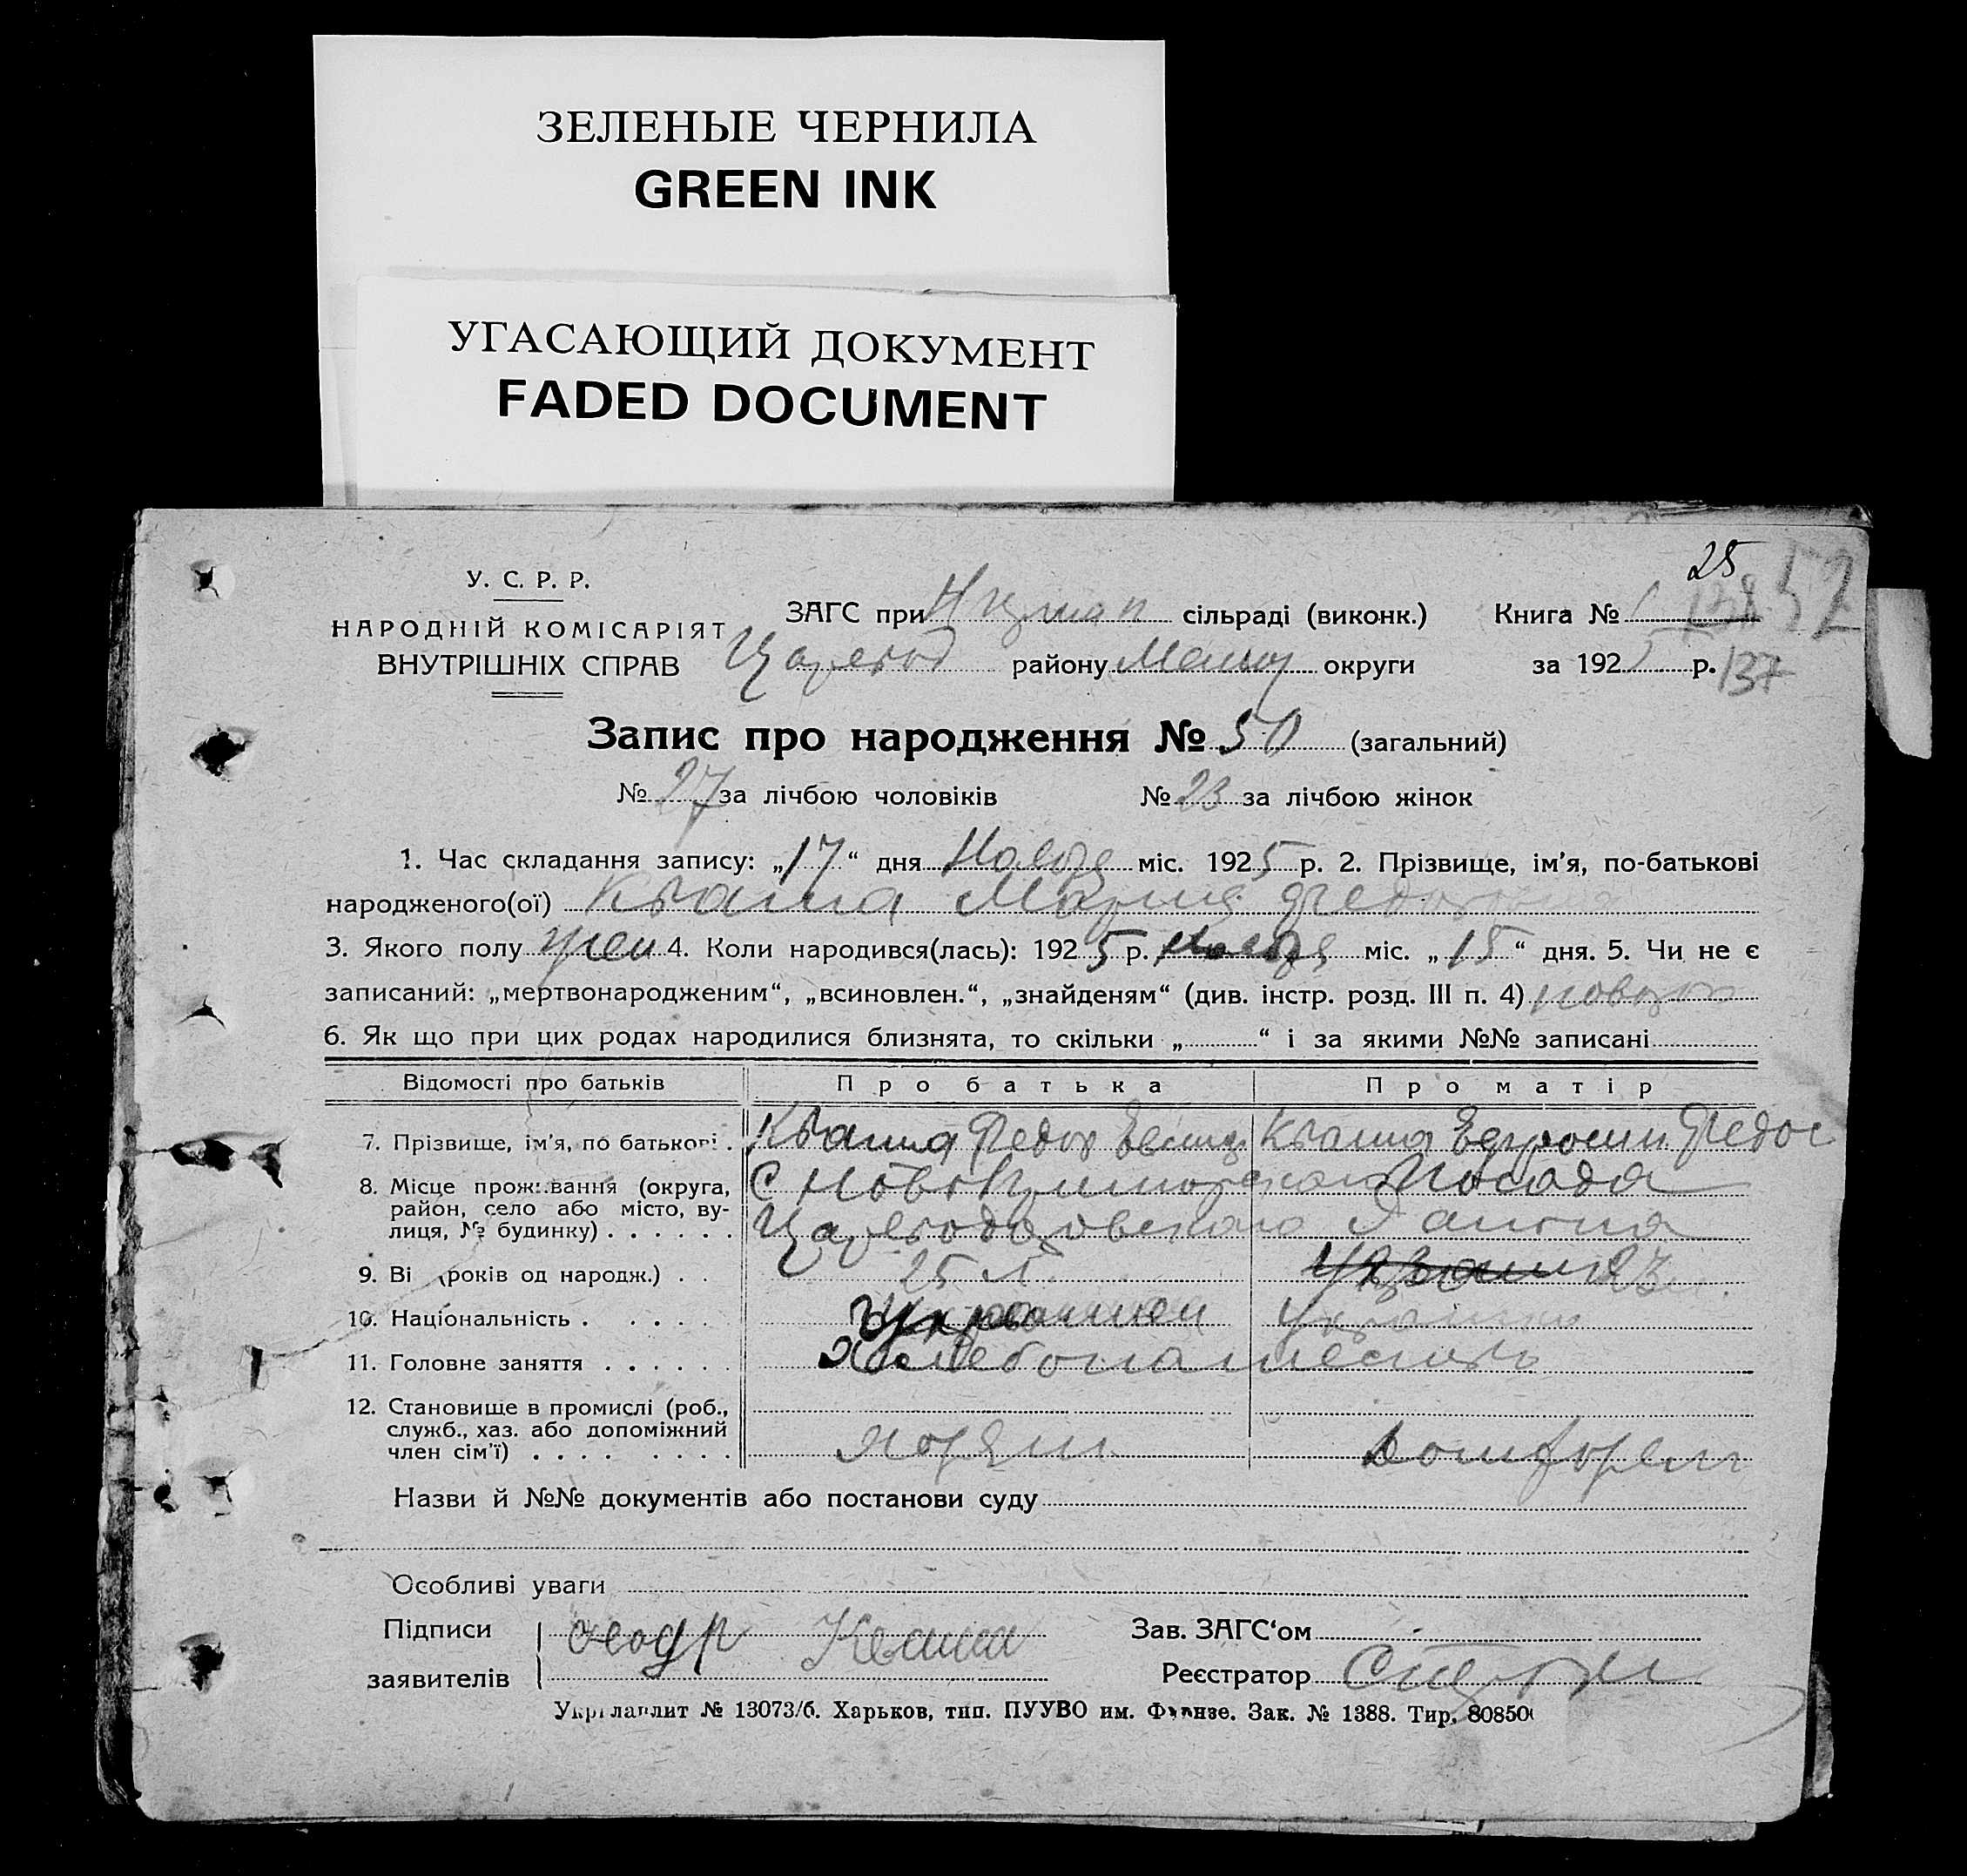 ЗЕЛЕНЫЕ ЧЕРНИЛА
GREEN INK
УГАСАЮЩИЙ ДОКУМЕНТ
FADED DOCUMENT
25
52
У. С. Р. Р.
НАРОДНІЙ КОМІСАРІЯТ
ВНУТРІШНІХ СПРАВ
ЗАГС при сільраді (виконк.) Книга № 1 138
Царевод району Мелит округи за 1925 р. 137
Запис про народження № 50 (загальний)
№ 27 за лічбою чоловіків № 23 за лічбою жінок
1. Час складання запису: „17“ дня Ноября міс. 1925 р. 2. Прізвище, ім’я, по-батькові
народженого(ої) Кваша Мария Федоровна
3. Якого полу жен 4. Коли народився(лась): 1925 р. Ноября міс. „15“ дня. 5. Чи не є
записаний: „мертвонародженим“, „всиновлен.“, „знайденям“ (див. інстр. розд. III п. 4)
6. Як що при цих родах народилися близнята, то скільки „ “ і за якими №№ записані
Відомості про батьків Про батька Про матір
7. Прізвище, ім’я, по батькові . Кваша Федор Кваша Ефросин Федос
8. Місце проживання (округа, С Ново Посада
район, село або місто, ву-
лиця, № будинку) . . . . . . Цареводаровского Района
9. Вік (років од народж.) . . 25 л. 23 л.
10. Національність . . . . . Украинец Украинка
11. Головне заняття . . . . . . Хлебопашество
12. Становище в промислі (роб.,
служб., хаз. або допоміжний
член сім’ї) . . . . . . . . хозяин домохозяй
Назви й №№ документів або постанови суду
Особливі уваги
Підписи Кваша Зав. ЗАГС‘ом
заявителів Реєстратор
Укрглавлит № 13073/б. Харьков, тип. ПУУВО им. Фрунзе. Зак. № 1388. Тир. 80850